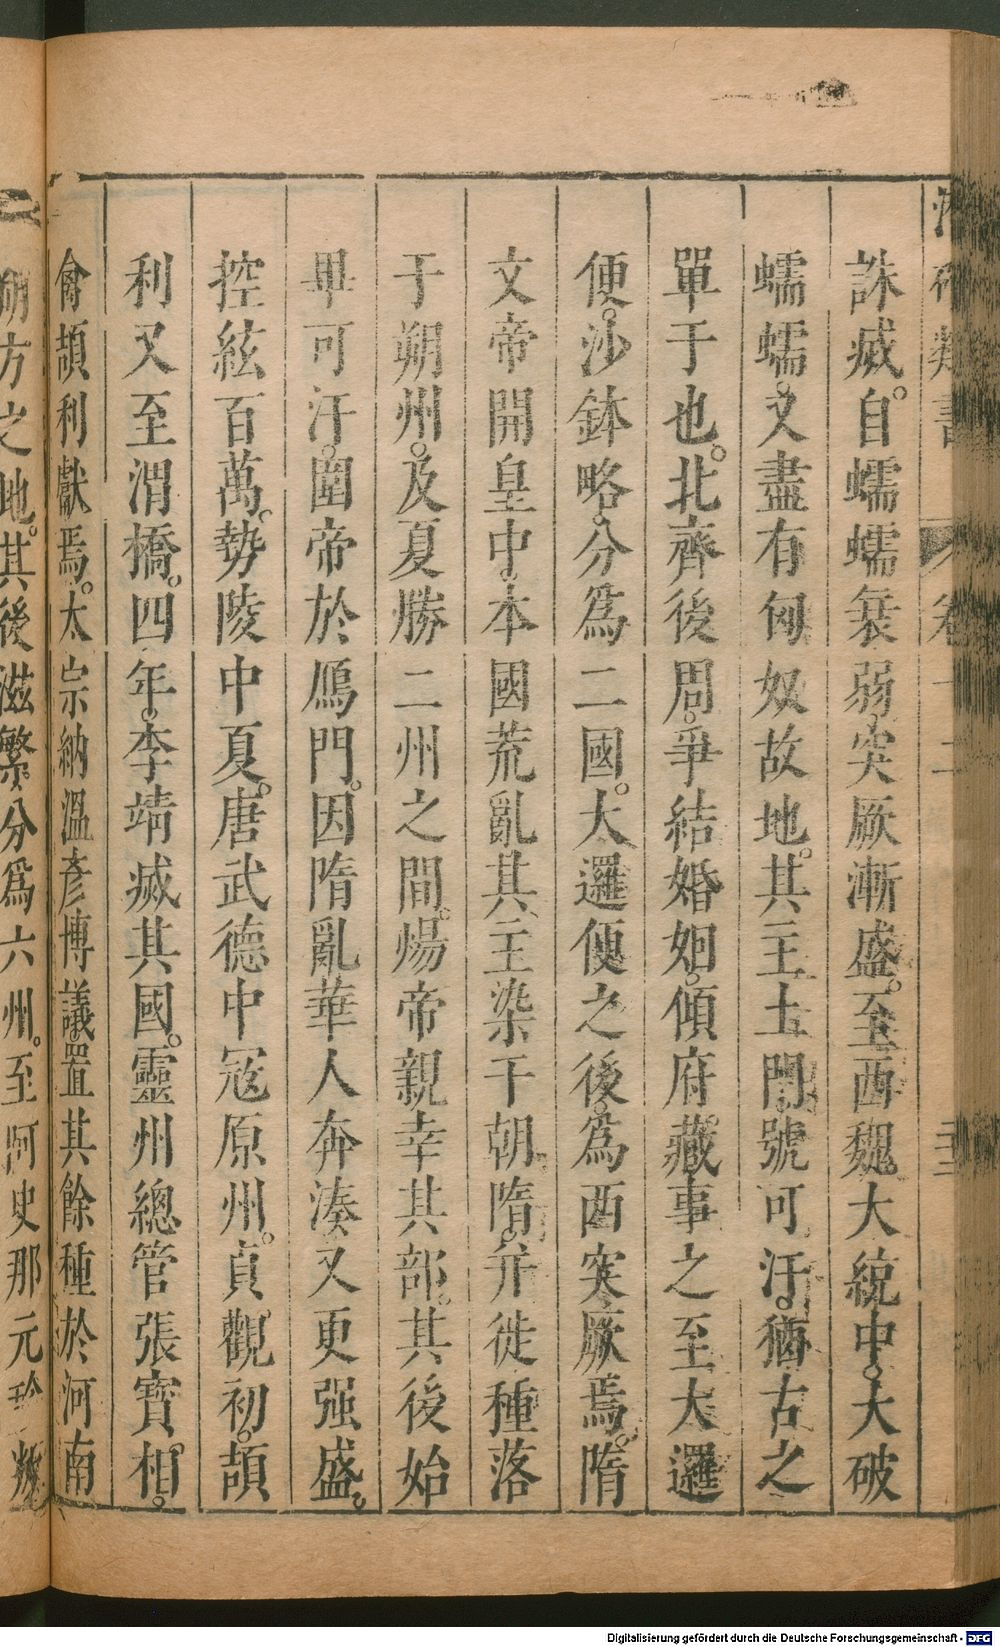 誅㓕。自蠕蠕衰弱。突厥漸盛。至西魏大統中。大破
蠕蠕。又盡有匈奴故地。其主土門。號可汗。猶古之
單于也。北齊後周。爭結婚姻。傾府藏事之至大邏
便。沙鉢略。分為二國。大邏便之後。為西突厥焉。隋
文帝開皇中。本國荒亂其主染干朝隋。并徙種落
于朔州。及夏勝二州之間。煬帝親幸其部。其後始
畢可汗。圍帝於鴈門。因隋亂華人奔湊又更强盛。
控絃百萬。勢陵中夏。唐武德中冦原州。貞觀初。頡
利又至渭橋。四年。李靖㓕其國。靈州總管張寶相。
禽頡利獻焉。太宗納溫彥博議。置其餘種於河南
朔方之地。其後滋繁。分為六州。至阿史那元珍叛
Digitalisierung gefördert durch die Deutsche Forschungsgemeinschaft - DFG